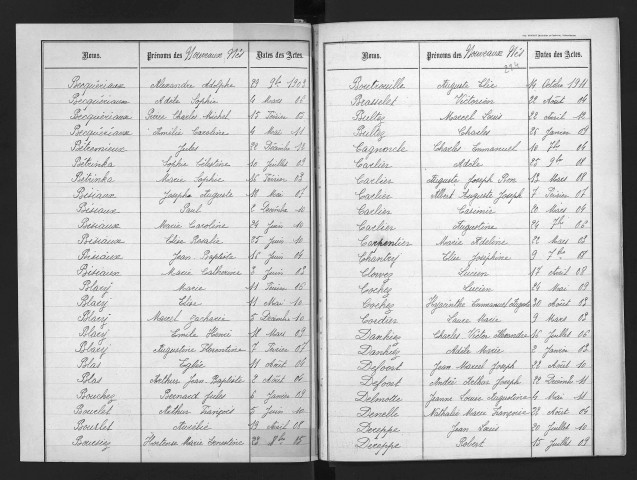 Noms. Prénoms des Nouveaux Nés Dates des Actes.
Becquériaux Alexandre Adolphe 23 9bre 1903
Becquériaux Adèle Sophie 4 Mars 06
Becquériaux Pierre Charles Michel 15 Février 05
Becquériaux Emilie Caroline 4 Mai 11
Bétremieux Jules 28 Décembre 12
Bétrinka Sophie Célestine 10 Juillet 03
Bétrinka Marie Sophie 16 Février 03
Boseaux Joseph Auguste 18 Mai 07
Boseaux Paul 2 10
Boseaux Marie Caroline 24 Juin 10
Boseaux Elise Rosalie 25 Juin 10
Boseaux Jean Baptiste 16 Juin 04
Boseaux Marie Catherine 2 Juin 02
Blaey Marie 11 Février 06
Blaey Elise 11 Mai 10
Blaey Marcel Zacharie 5 Décembre 10
Blaey Emile Henri 18 Mars 09
Blaey Augustine Florentine 7 Février 07
Blas Eglée 11 Août 04
Blas Arthur Jean Baptiste 2 Août 04
Bouchez Bernard Jules 6 Janvier 09
Bouclet Arthur François 5 Juin 10
Bourlet Aurélie 13 Avril 08
Boussey Hortense Marie Ernestine 23 8bre 05
Noms. Prénoms des Nouveaux Nés Dates des Actes.
Boutrouille Auguste Elie 14 Octobre 1911
Brasselet Victorien 22 Août 04
Bultey Marcel Louis 23 Avril 12
Bultey Charles 25 Janvier 09
Cagnouck Charles Emmanuel 10 7bre 06
Carlier Adèle 25 9bre 08
Carlier Auguste Joseph Léon 12 Mars 08
Carlier Albert Auguste Joseph 7 Février 07
Carlier Casimir 20 Mars 04
Carlier Augustine 24 7bre 05
Carpentier Marie Adeline 22 Mars 03
Chantry Elise Joséphine 9 7bre 08
Clovez Lucien 17 Avril 08
Cochez Lucien 24 Mai 09
Cochez Hyacinthe Emmanuel 30 Août 02
Cordier Luce Marie 9 Mars 02
Danhiez Charles Victor Alexandre 16 Juillet 05
Danhiez Adèle Marie 2 Janvier 02
Defoort Jean Marcel Joseph 22 Août 10
Defoort André Arthur Joseph 22 Décembre 11
Defnotte Jeanne Louise Augustine 4 Mai 11
Denelle Nathalie Marie Françoise 28 Août 06
Dieppe Jean Louis 20 Juillet 10
Dieppe Robert 15 Juillet 09